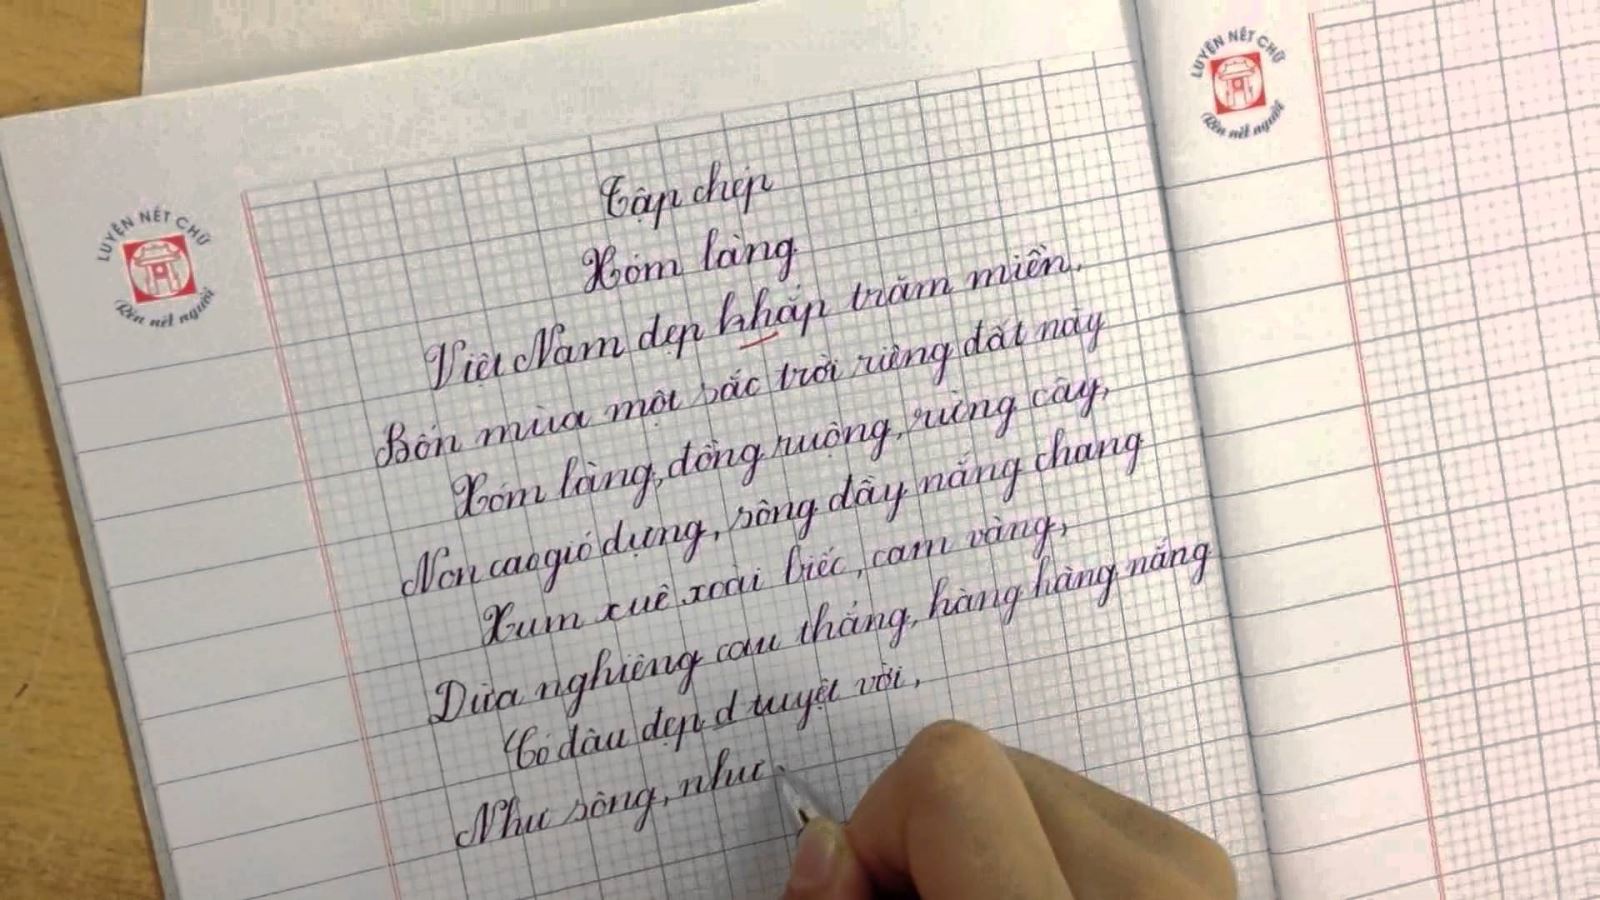 LUYỆN NÉT CHỮ
Rèn nết người
Tập chép
Xóm làng
Việt Nam đẹp khắp trăm miền,
Bốn mùa một sắc trời riêng đất này
Xóm làng, đồng ruộng, rừng cây,
Non cao gió dựng, sông đầy nắng chang
Xum xuê xoài biếc, cam vàng,
Dừa nghiêng cau thẳng, hàng hàng nắng
Có đâu đẹp d tuyệt vời,
Như sông, như
LUYỆN NÉT CHỮ
Rèn nết người